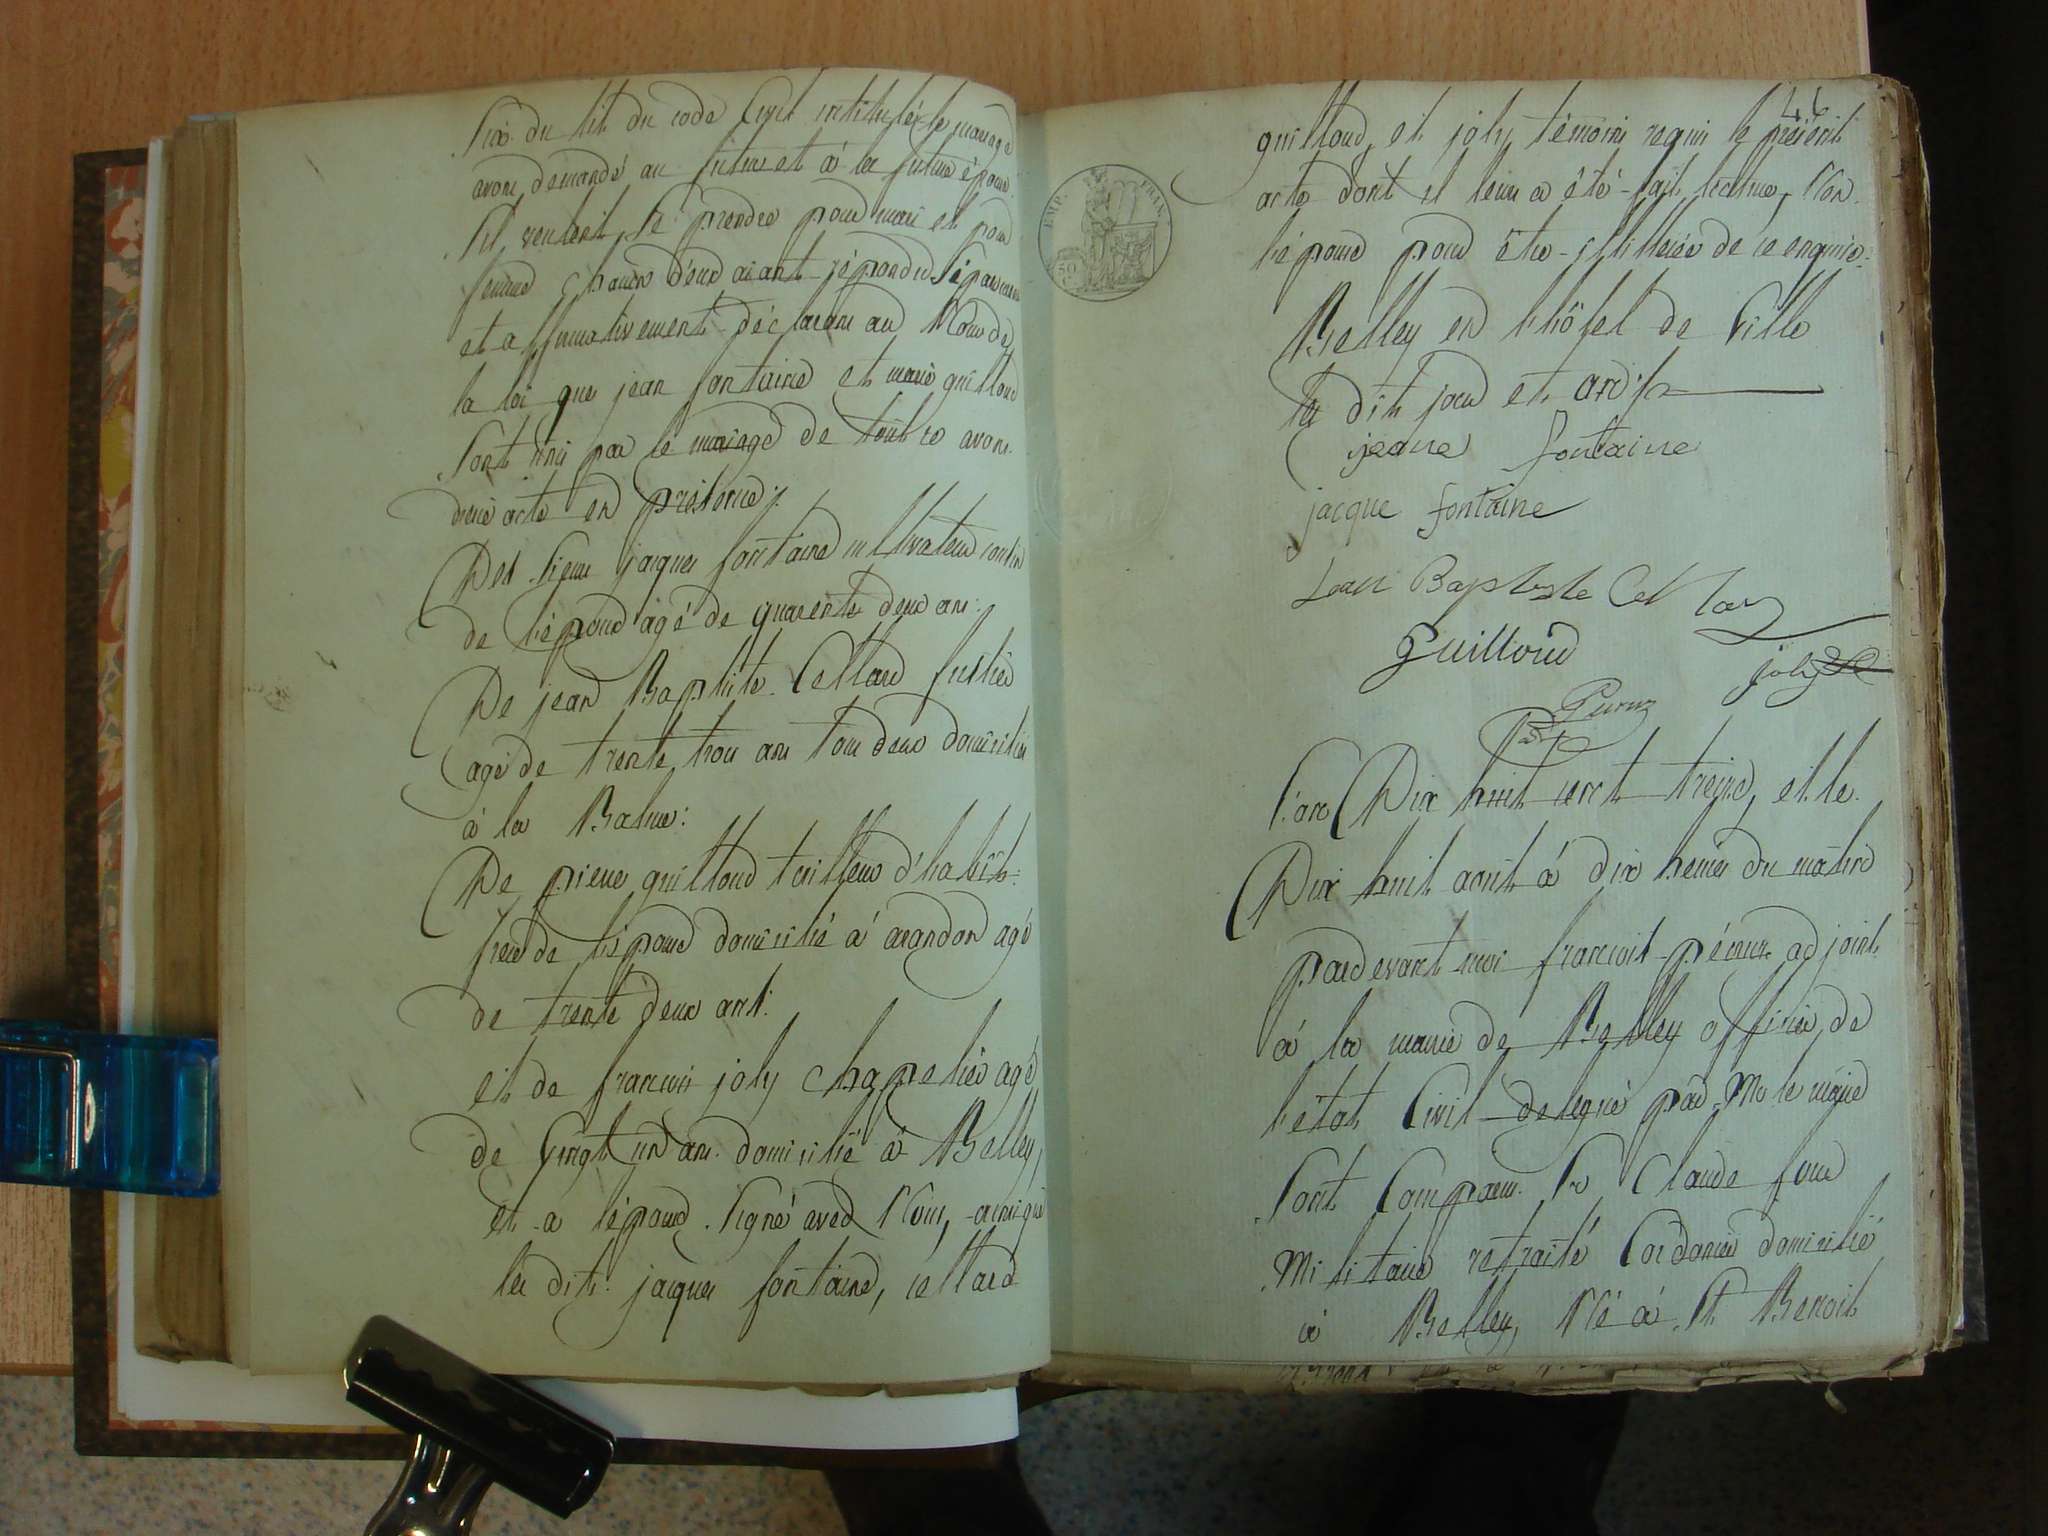 Six du tit du code Civil intitulé le mariage
avons demandé au futur et à la future épouse
S'il veulent se prendre pour mari et pour
femme chacun d'eux aiant répondu séparement
et affirmativement déclarons au Nom de
la loi que jean fontaine et marie guilloud
Sont unis par le mariage de tout ce avons
dressé acte en présence
Des Sieurs jacques fontaine cultivateur cousin
de l'époux agé de quarente deux ans
De jean Baptiste Cellard
agé de trente trois ans tous deux domiciliés
à la Balme:
De pierre guilloud tailleur d'habits
frere de l'épouse domicilié à arandon agé
de trente deux ans:
et de francois joly chapelier agé
de Vingt un ans domicilié à Belley,
et a l'époux Signé avec Nous, ainsi que
les dits jacques fontaine, cellard
46
guilloud, et joly, témoins requis le présent
acte dont il leur a été fait lecture, Non
l'épouse pour être illiterée de ce enquise
Belley en l'hôtel de Ville
les dit jour et an
EMP. FRAN.
50
jeane fontaine
jacque fontaine
Jean Baptiste Cellar
Guilloud
joly
L'an Dix huit cent treize, et le
Dix huit aout à dix heures du matin
pardevant moi francois adjoint
à la mairie de Belley officier de
l'état Civil délégué par Mr le maire
Sont Comparus Sr Claude
Militaire retraité Cordonier domicilié
à Belley, Né à St Benoit